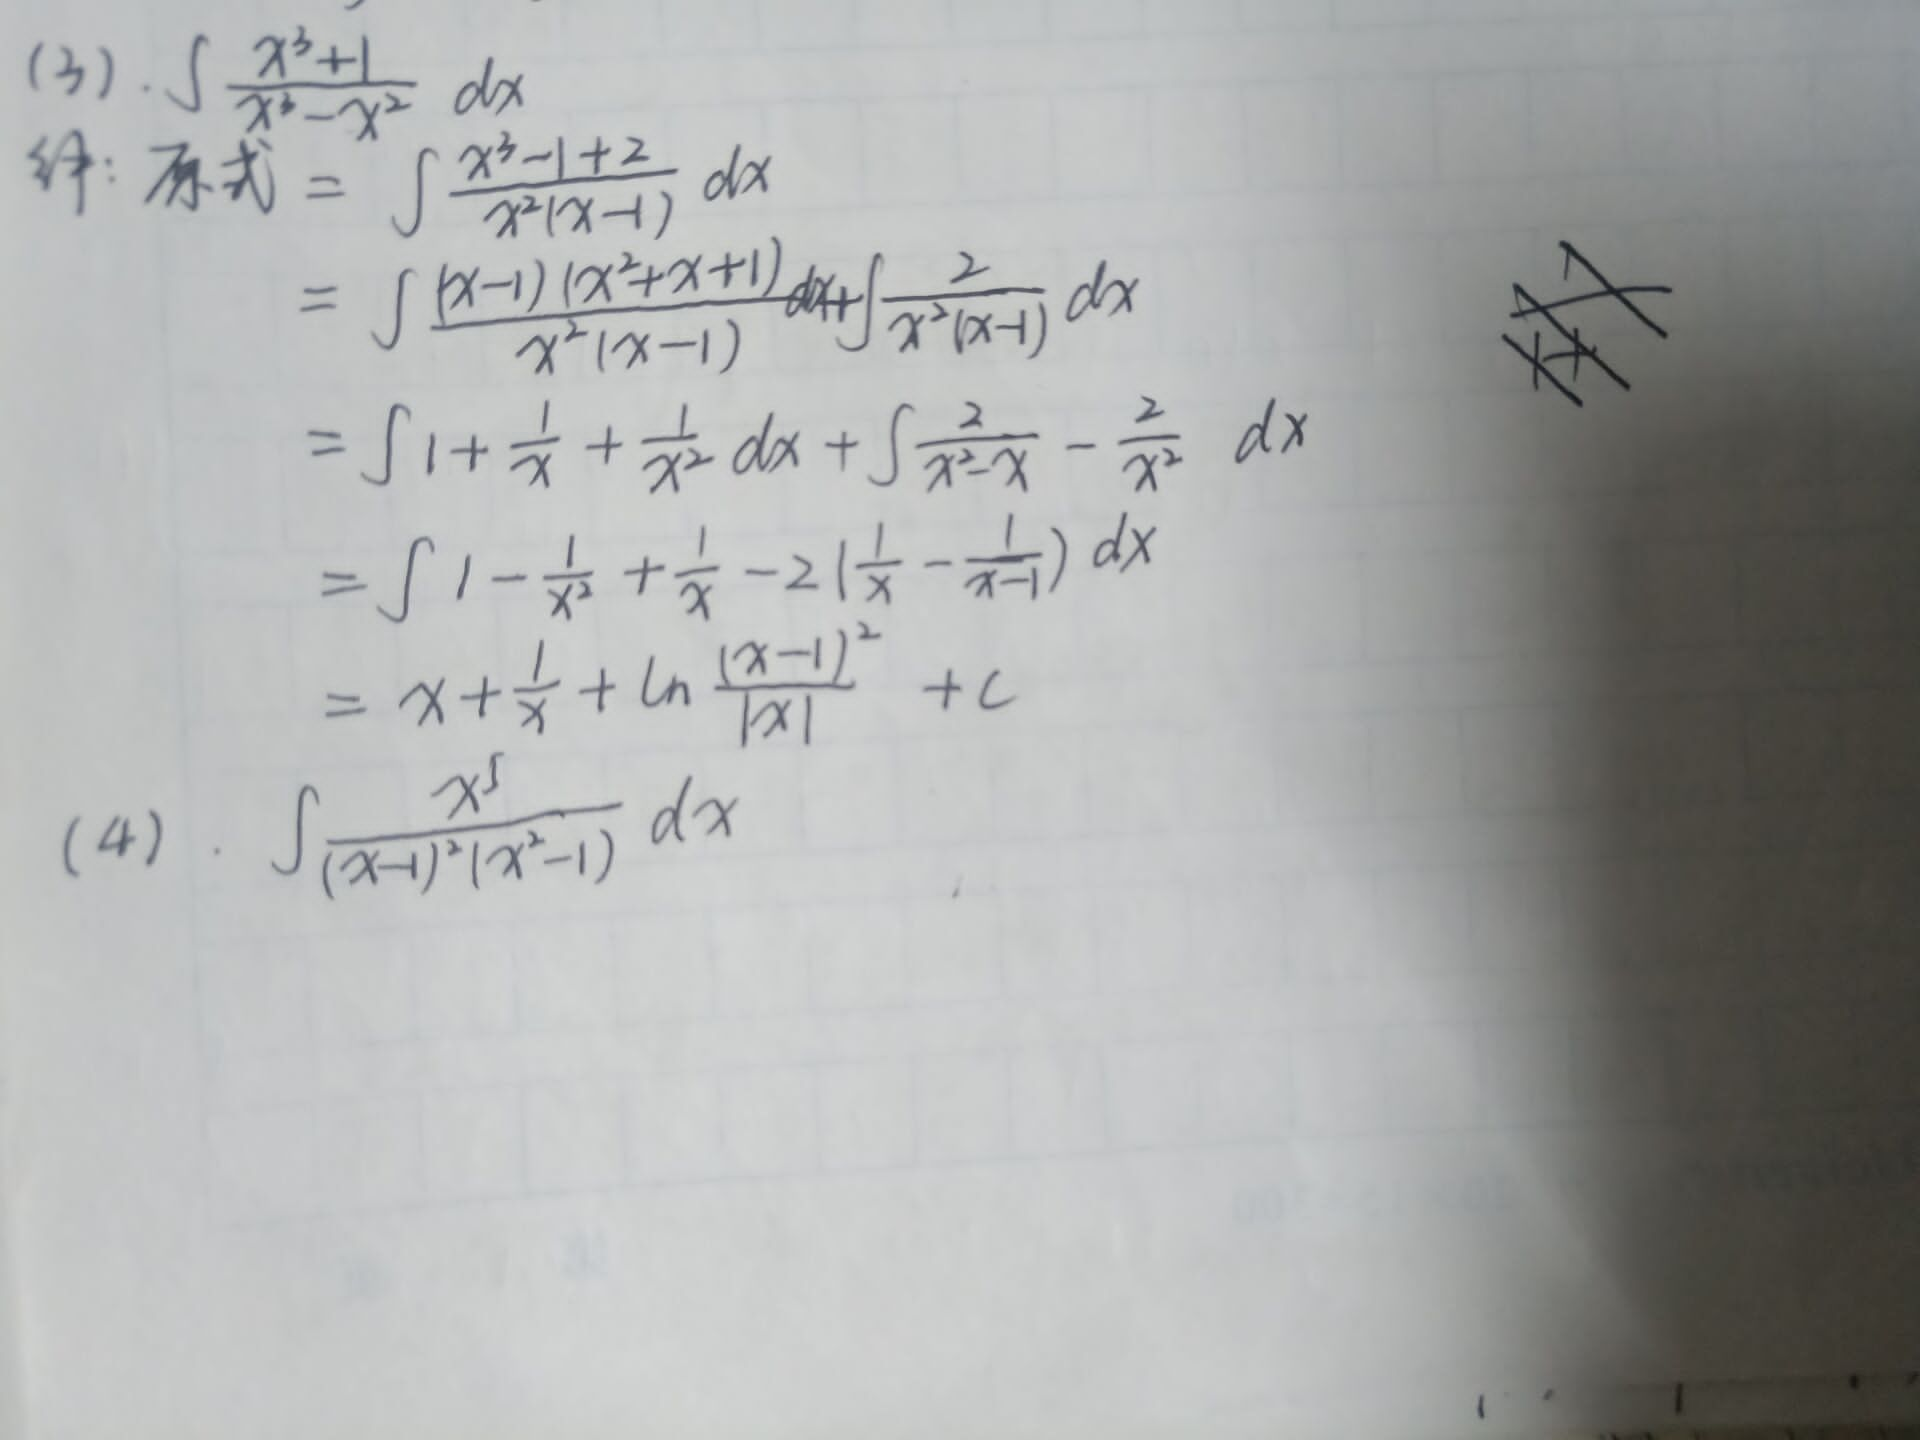 (3). ∫ (x³+1)/(x³-x²) dx
解: 原式 = ∫ (x³-1+2)/(x²(x-1)) dx
= ∫ ((x-1)(x²+x+1))/(x²(x-1)) dx + ∫ 2/(x²(x-1)) dx
= ∫ 1 + 1/x + 1/x² dx + ∫ 2/(x²-x) - 2/x² dx
= ∫ 1 - 1/x² + 1/x - 2(1/x - 1/(x-1)) dx
= x + 1/x + ln (x-1)²/|x| + C
(4). ∫ x⁵/((x-1)²(x²-1)) dx